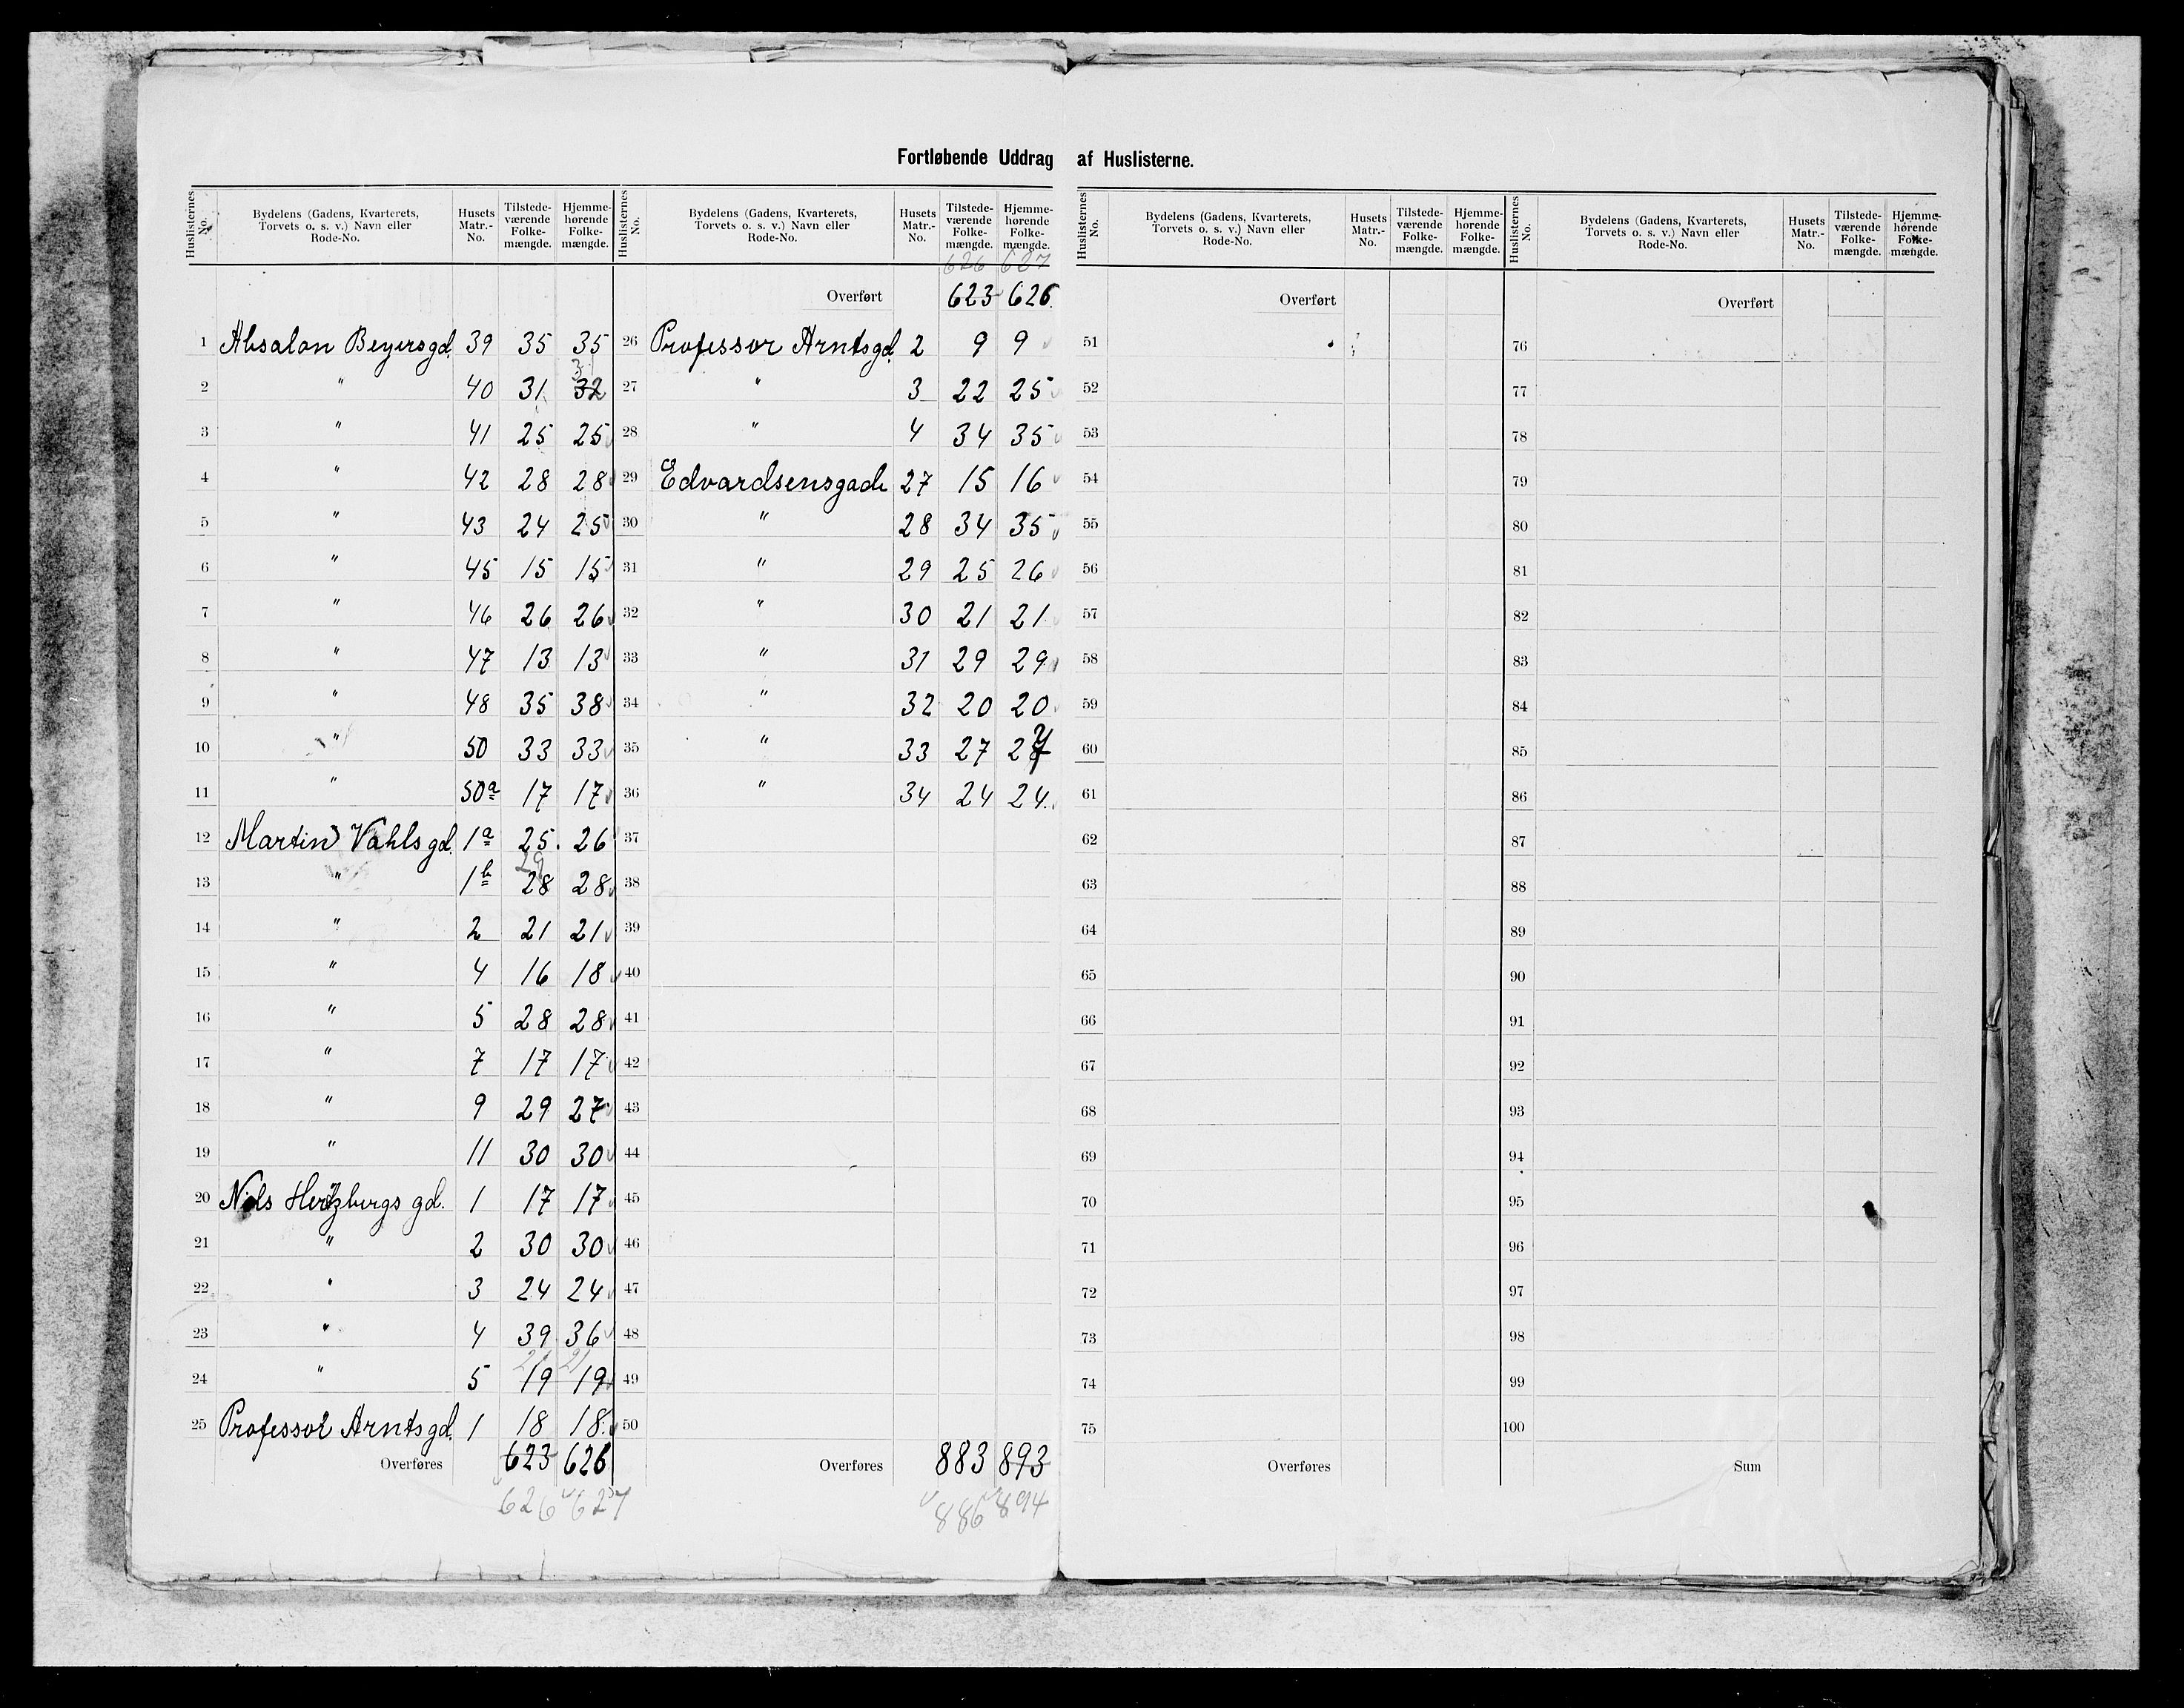 Fortløbende Uddrag af Huslisterne.
Huslisternes No. Bydelens (Gadens, Kvarterets, Torvets o. s. v.) Navn eller Rode-No. Husets Matr.-No. Tilstedeværende Folkemængde. Hjemmehørende Folkemængde.
1 Absalon Beyersgd. 39 35 35
2 " 40 31 32 31
3 " 41 25 25
4 " 42 28 28
5 " 43 24 25
6 " 45 15 15
7 " 46 26 26
8 " 47 13 13
9 " 48 35 38
10 " 50 33 33
11 " 50a 17 17
12 Martin Vahlsgd. 1a 25 26
13 " 1b 28 29 28
14 " 2 21 21
15 " 4 16 18
16 " 5 28 28
17 " 7 17 17
18 " 9 29 27
19 " 11 30 30
20 Niels Hertzbergs gd. 1 17 17
21 " 2 30 30
22 " 3 24 24
23 " 4 39 36
24 " 5 19 21 19 21
25 Professor Arntsgd. 1 18 18
Overføres 623 626
626 627
Huslisternes No. Bydelens (Gadens, Kvarterets, Torvets o. s. v.) Navn eller Rode-No. Husets Matr.-No. Tilstedeværende Folkemængde. Hjemmehørende Folkemængde.
626 627
Overført 623 626
26 Professor Arntsgd. 2 9 9
27 " 3 22 25
28 " 4 34 35
29 Edvardsensgade 27 15 16
30 " 28 34 35
31 " 29 25 26
32 " 30 21 21
33 " 31 29 29
34 " 32 20 20
35 " 33 27 27
36 " 34 24 24
37
38
39
40
41
42
43
44
45
46
47
48
49
50
Overføres 883 893
886 894
Huslisternes No. Bydelens (Gadens, Kvarterets, Torvets o. s. v.) Navn eller Rode-No. Husets Matr.-No. Tilstedeværende Folkemængde. Hjemmehørende Folkemængde.
Overført
51
52
53
54
55
56
57
58
59
60
61
62
63
64
65
66
67
68
69
70
71
72
73
74
75
Overføres
Huslisternes No. Bydelens (Gadens, Kvarterets, Torvets o. s. v.) Navn eller Rode-No. Husets Matr.-No. Tilstedeværende Folkemængde. Hjemmehørende Folkemængde.
Overført
76
77
78
79
80
81
82
83
84
85
86
87
88
89
90
91
92
93
94
95
96
97
98
99
100
Sum